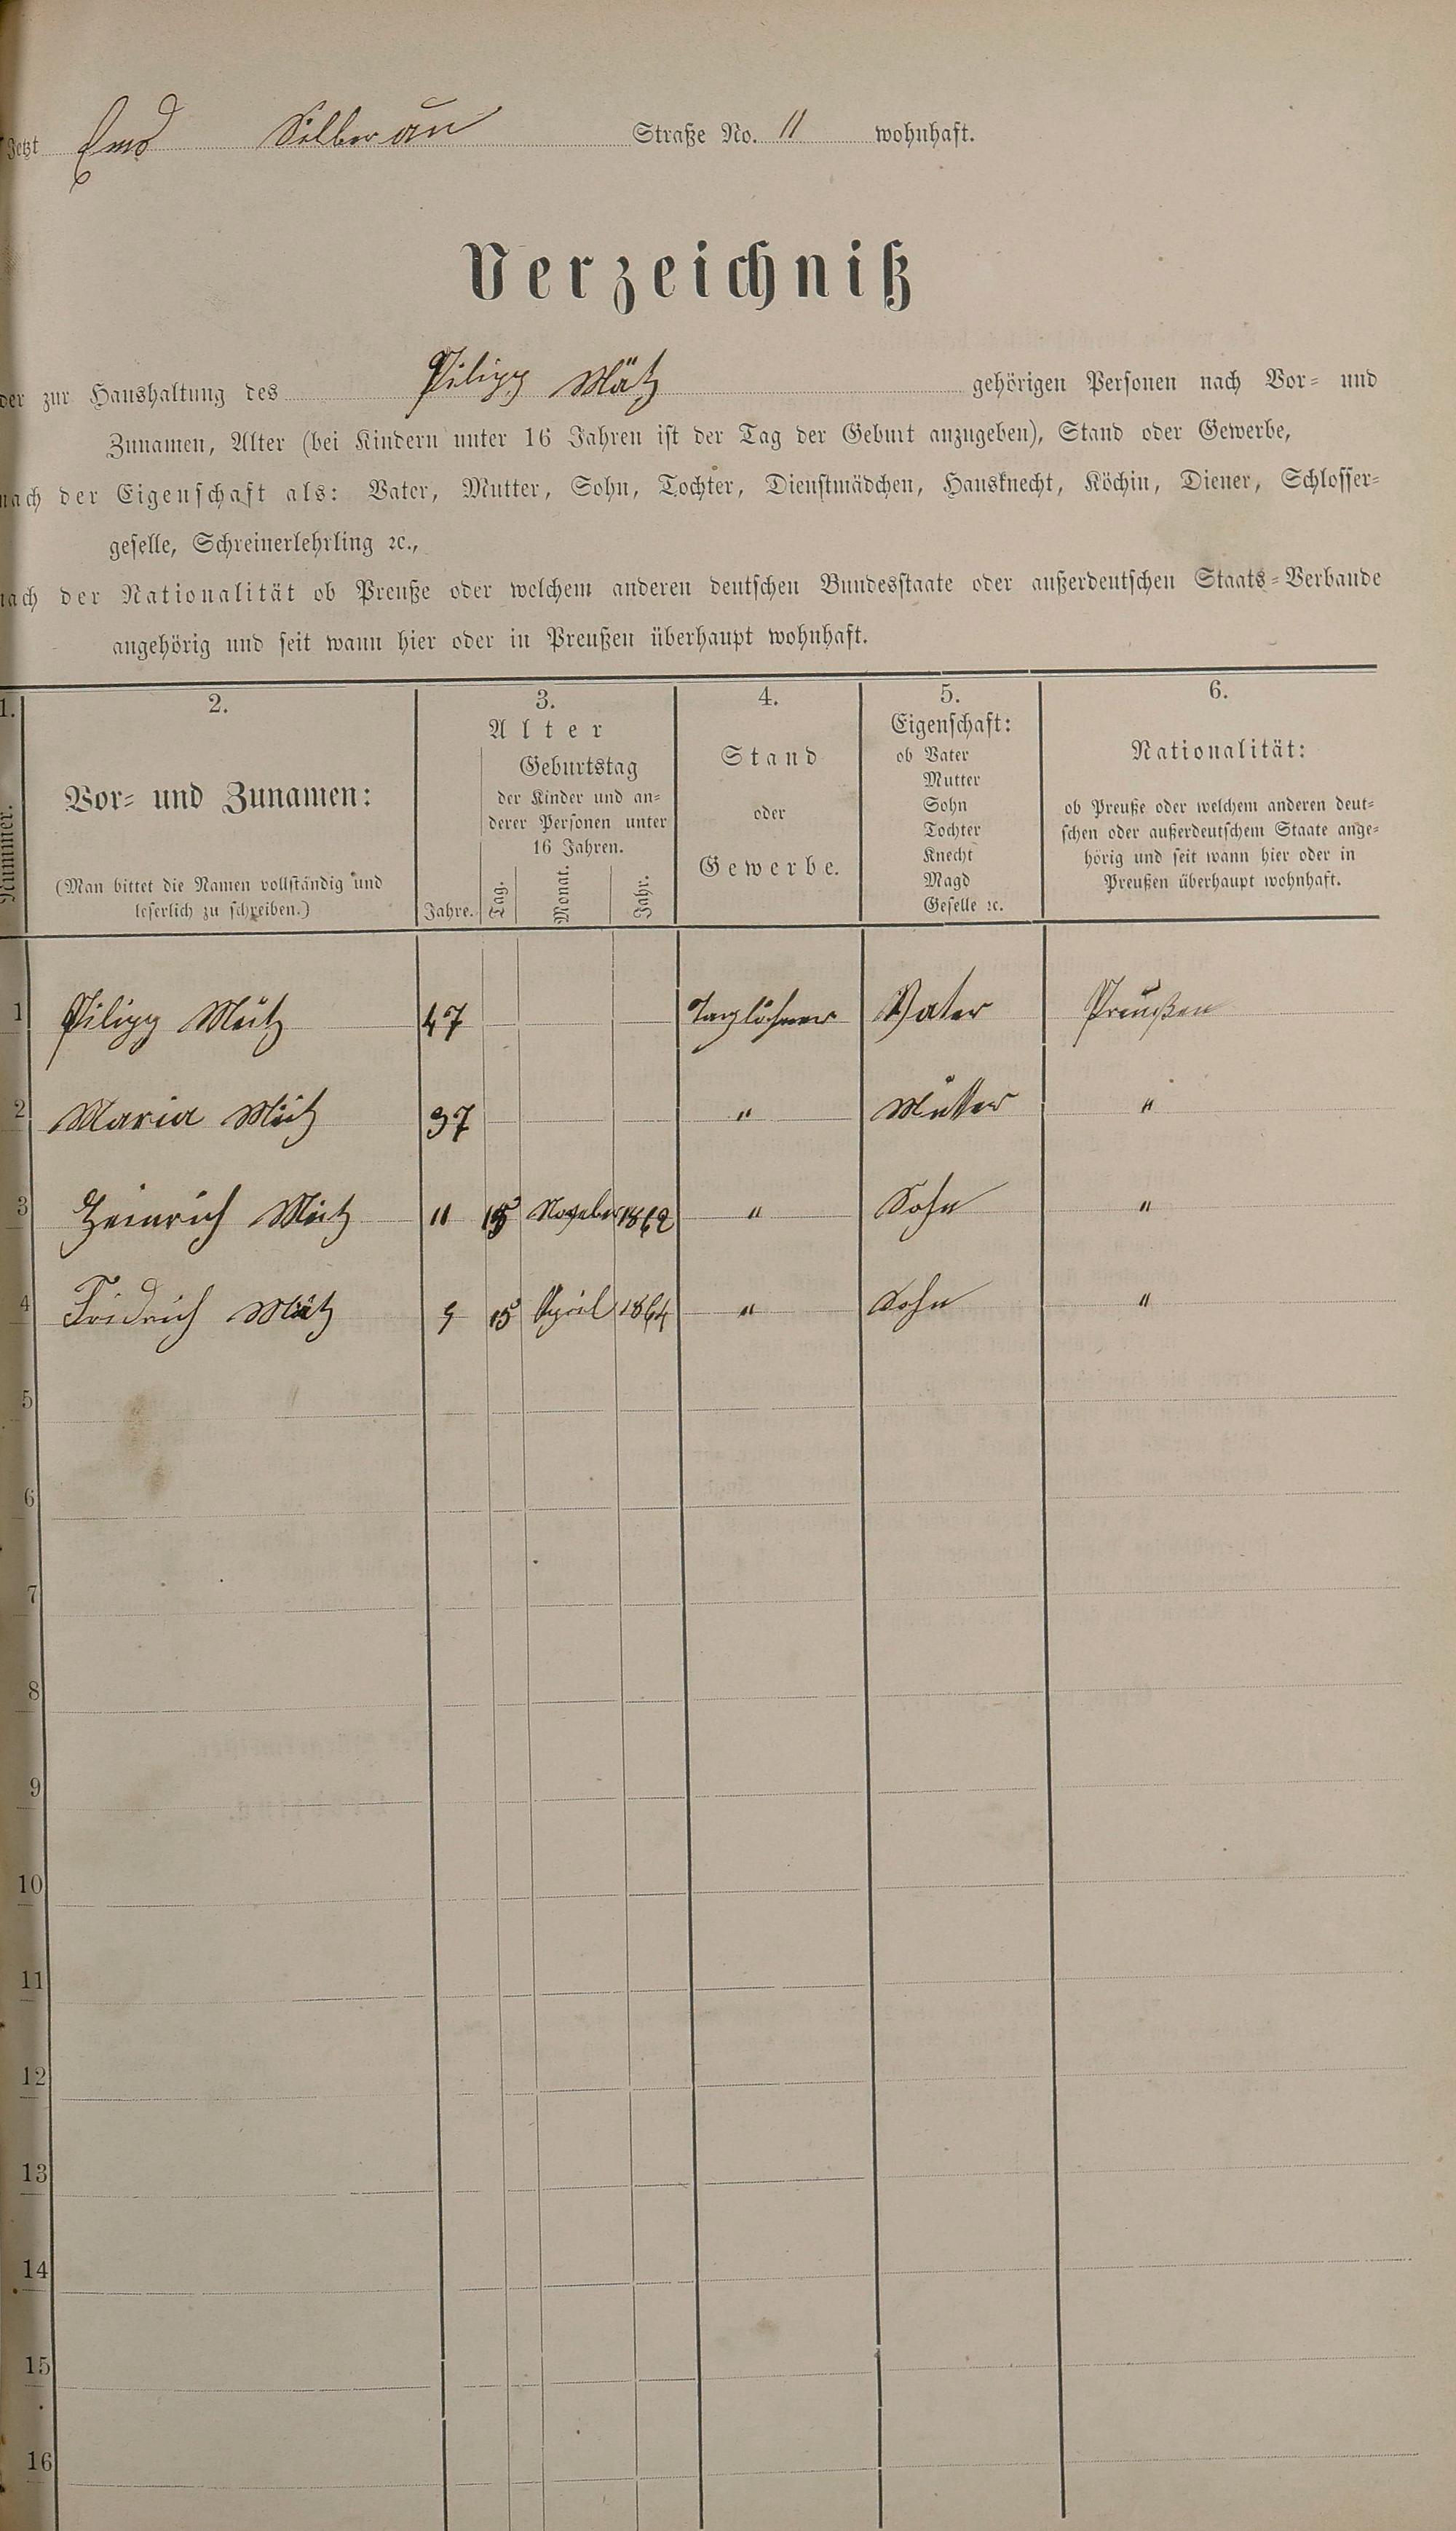 Jetzt Ems Silberau Straße No. 11 wohnhaft.
Verzeichniß
der zur Haushaltung des Pilipp Mätz gehörigen Personen nach Vor- und
Zunamen, Alter (bei Kindern unter 16 Jahren ist der Tag der Geburt anzugeben), Stand oder Gewerbe,
nach der Eigenschaft als: Vater, Mutter, Sohn, Tochter, Dienstmädchen, Hausknecht, Köchin, Diener, Schlosser-
geselle, Schreinerlehrling ꝛc.,
nach der Nationalität ob Preuße oder welchem anderen deutschen Bundesstaate oder außerdeutschen Staats-Verbande
angehörig und seit wann hier oder in Preußen überhaupt wohnhaft.
1. 2. 3. 4. 5. 6.
Nummer.
Vor- und Zunamen:
(Man bittet die Namen vollständig und
leserlich zu schreiben.)
Alter
Jahre.
Geburtstag
der Kinder und an-
derer Personen unter
16 Jahren.
Tag. Monat. Jahr.
Stand
oder
Gewerbe.
Eigenschaft:
ob Vater
Mutter
Sohn
Tochter
Knecht
Magd
Geselle ꝛc.
Nationalität:
ob Preuße oder welchem anderen deut-
schen oder außerdeutschem Staate ange-
hörig und seit wann hier oder in
Preußen überhaupt wohnhaft.
1 Pilipp Mätz 47 Taglöhner Vater Preußen
2 Maria Mätz 37 " Mutter "
3 Heinrich Mätz 11 15 November 1862 " Sohn "
4 Fridrich Mätz 9 15 April 1864 " Sohn "
5
6
7
8
9
10
11
12
13
14
15
16